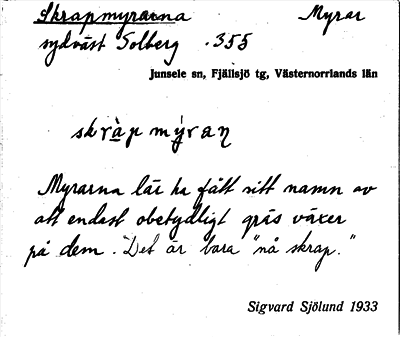 Skrapmyrarna Myrar
sydväst Solberg .355
Junsele sn, Fjällsjö tg, Västernorrlands län
skràpmýran
Myrarna lär ha fått sitt namn av
att endast obetydligt gräs växer
på dem. Det är bara "nå skrap."
Sigvard Sjölund 1933